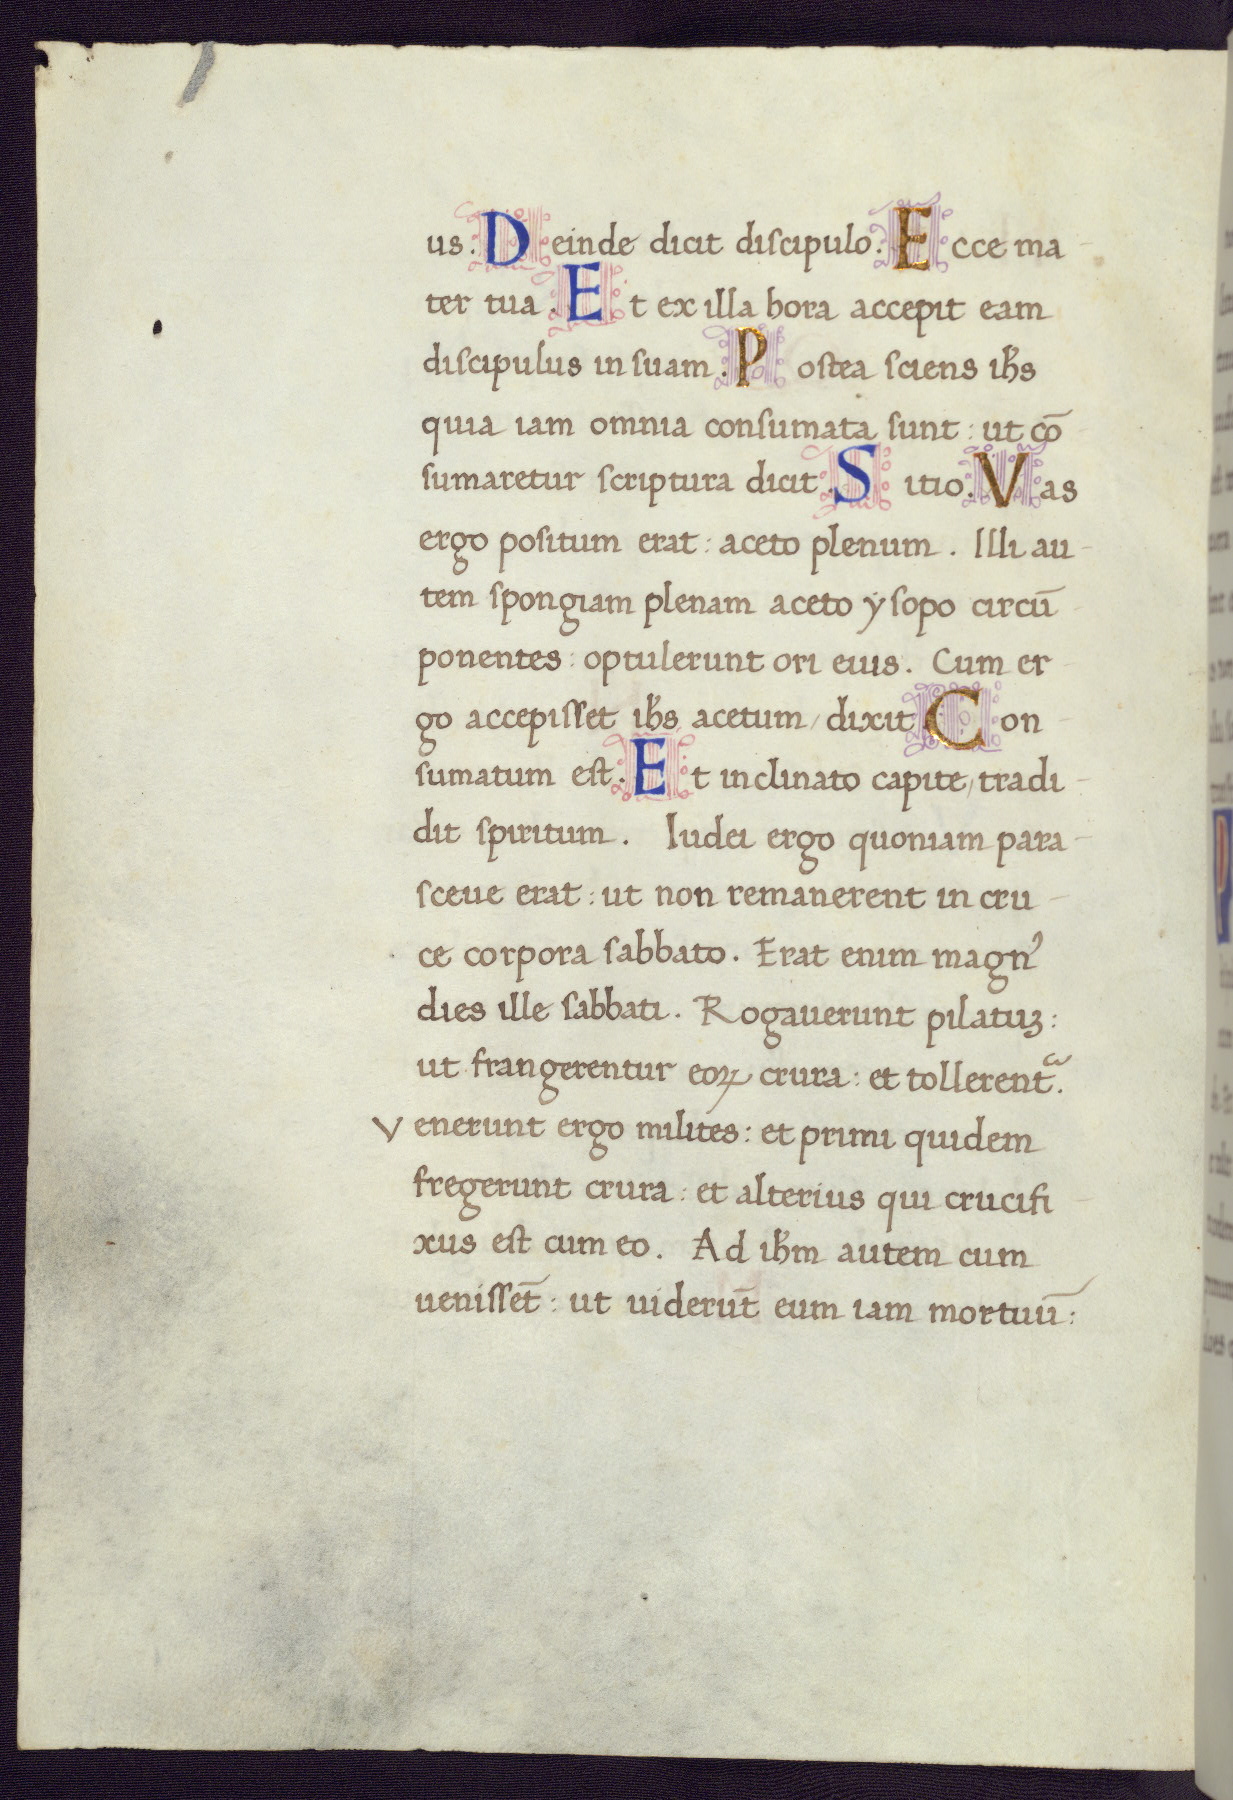 us. Deinde dicit discipulo. Ecce ma-
ter tua. Et ex illa hora accepit eam
discipulus in suam. Postea sciens ih̄s
quia iam omnia consumata sunt: ut cō
sumaretur scriptura dicit. Sitio. Vas
ergo positum erat: aceto plenum. Illi au-
tem spongiam plenam aceto ẏsopo circū-
ponentes: optulerunt ori eius. Cum er-
go accepisset ih̄s acetum / dixit Con-
sumatum est. Et inclinato capite, tradi-
dit spiritum. Iudei ergo quoniam para-
sceue erat: ut non remanerent in cru-
ce corpora sabbato. Erat enim magnꝰ
dies ille sabbati. Rogauerunt pilatuꝫ:
ut frangerentur eoꝝ crura: et tollerent᷑.
Venerunt ergo milites: et primi quidem
fregerunt crura: et alterius qui crucifi-
xus est cum eo. Ad ih̄m autem cum
uenissēt: ut uiderūt eum iam mortuū: